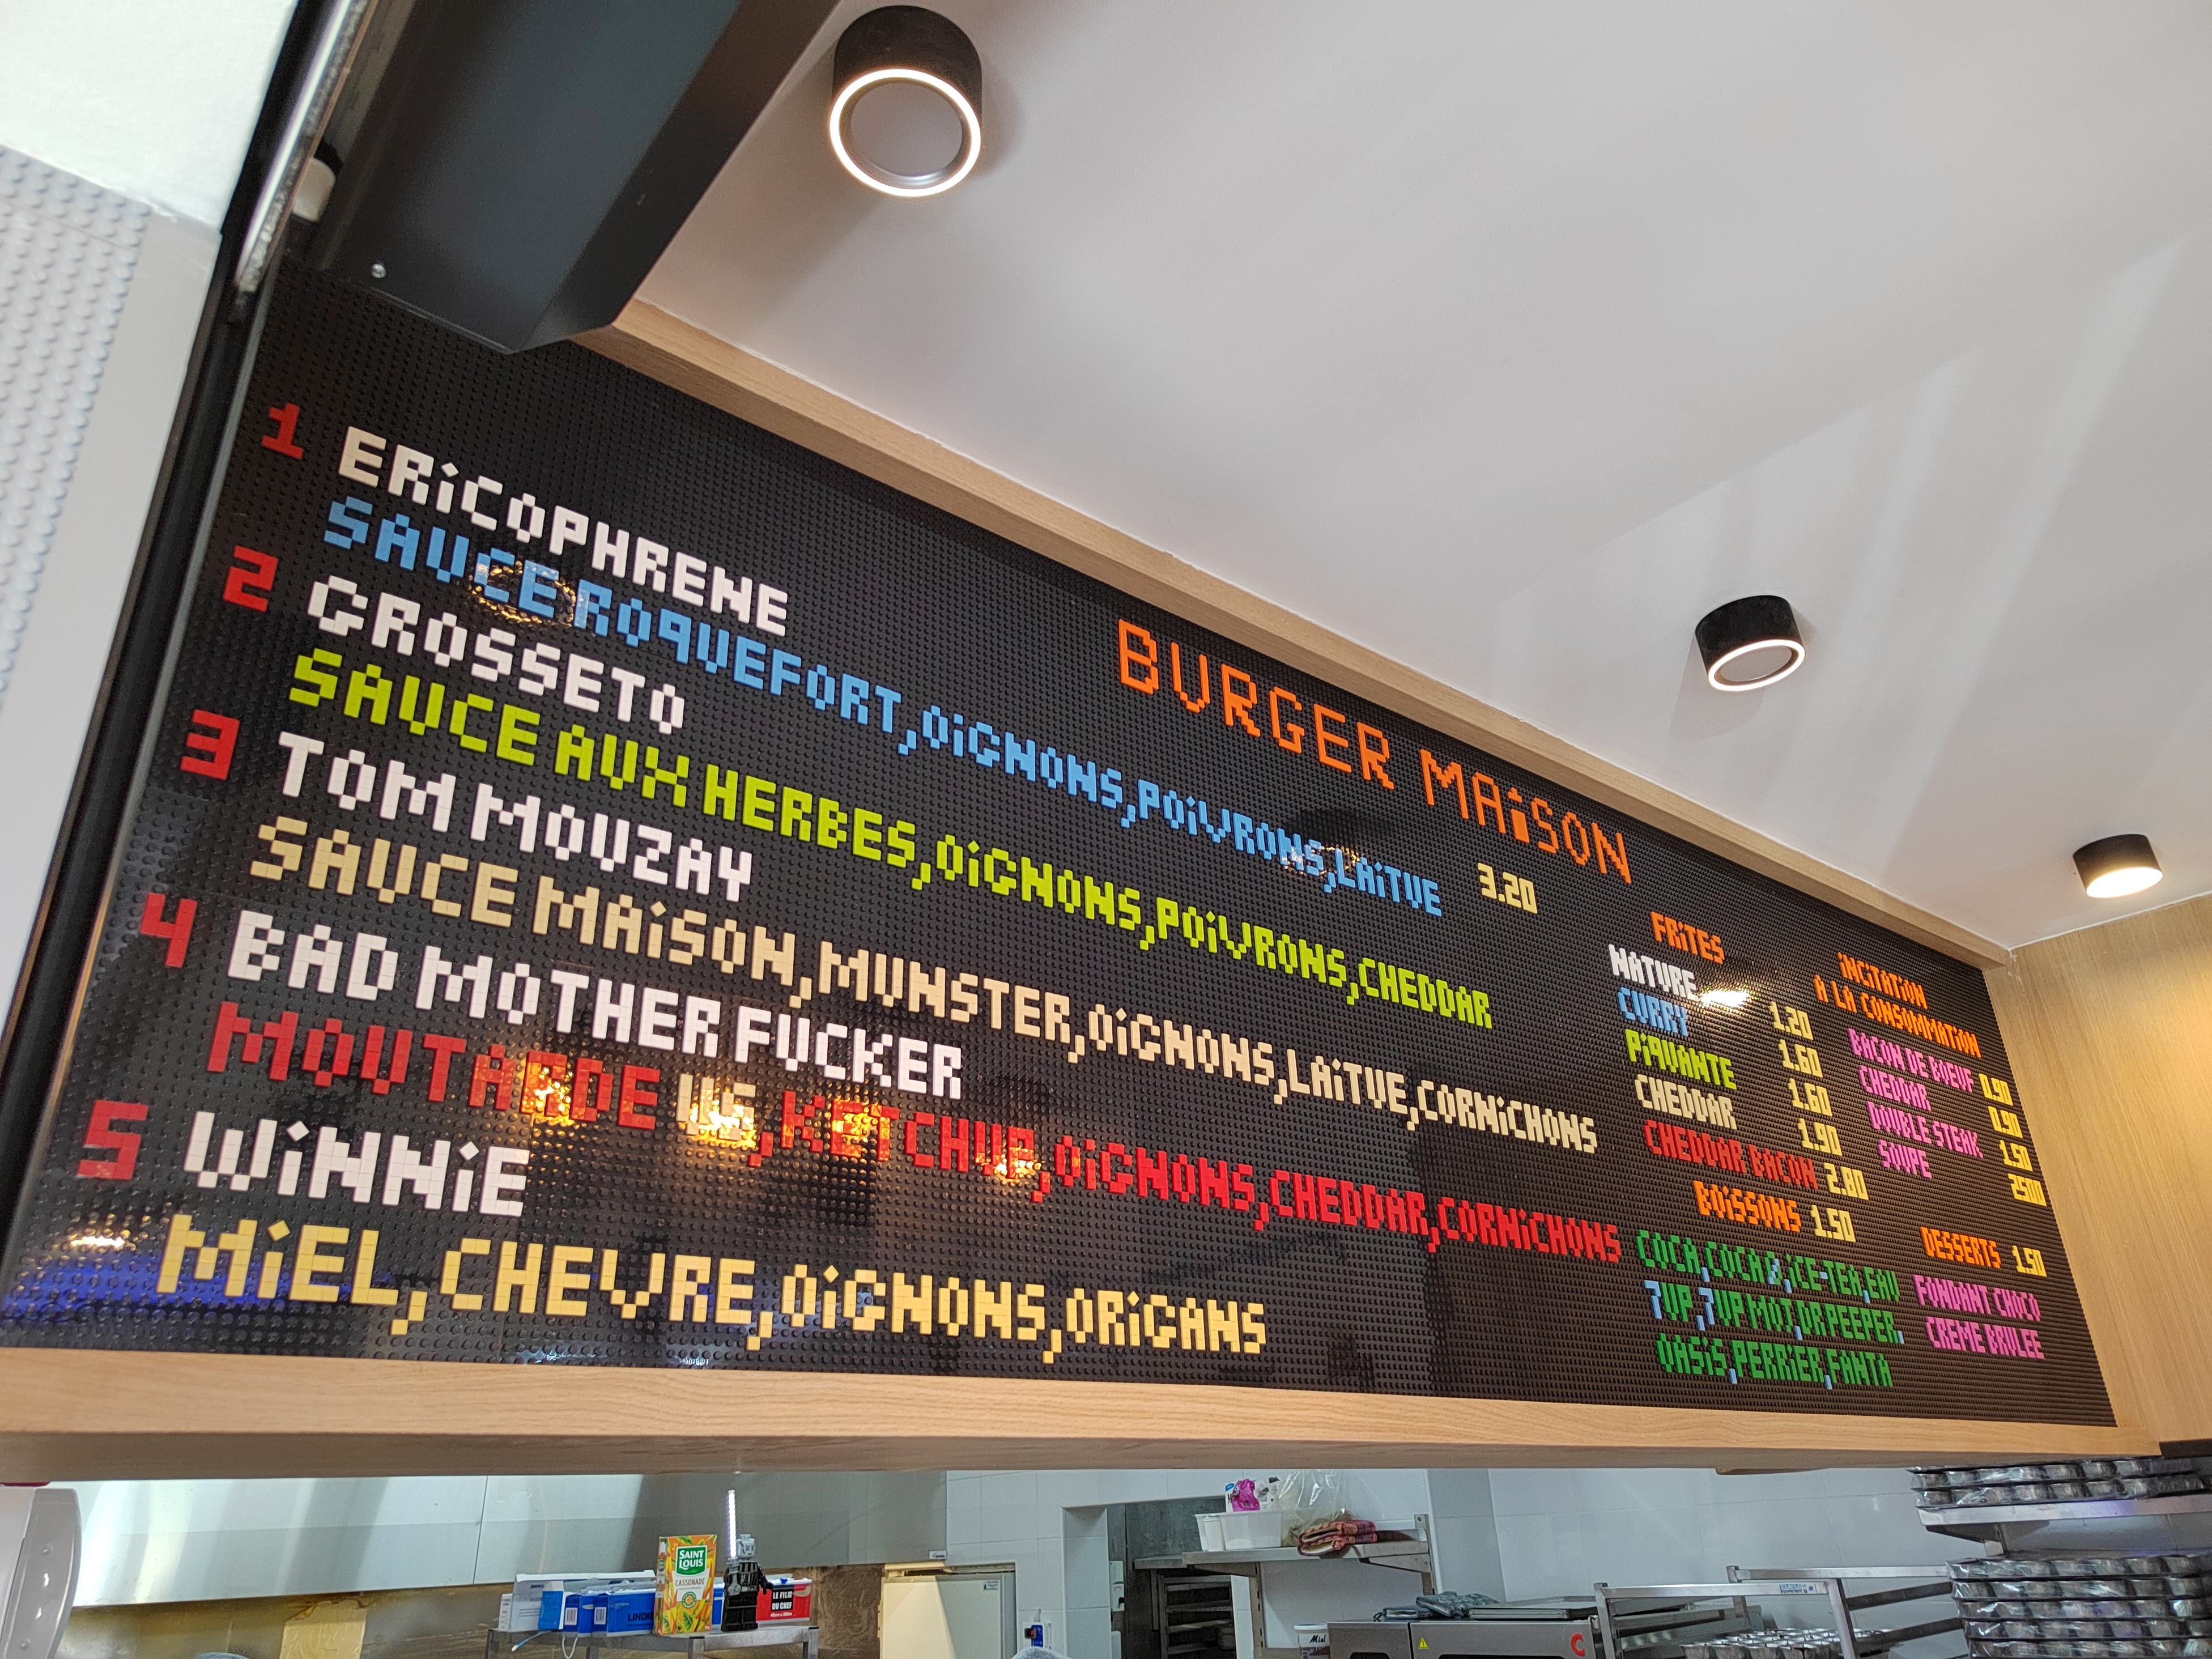 BURGER MAiSON
1 ERiCOPHRENE
SAUCE ROQUEFORT,OiGNONS,POiVRONS,LAiTUE 3.20
2 GROSSETO
SAUCE AUX HERBES,OiGNONS,POiVRONS,CHEDDAR
3 TOM MOUZAY
SAUCE MAiSON,MUNSTER,OiGNONS,LAiTUE,CORNiCHONS
4 BAD MOTHER FUCKER
MOUTARDE US,KETCHUP,OiGNONS,CHEDDAR,CORNiCHONS
5 WiNNiE
MiEL,CHEVRE,OiGNONS,ORiGANS
FRiTES
NATURE 1.20
CURRY 1.60
PiQUANTE 1.60
CHEDDAR 1.90
CHEDDAR BACON 2.80
BOiSSONS 1.50
COCA,COCA 0,iCE-TEA,EAU
7UP,7UP MOJ,DR PEEPER,
OASiS,PERRiER,FANTA
iNCiTATiON
A LA CONSOMMATiON
BACON DE BOEUF 0.90
CHEDDAR 0.90
DOUBLE STEAK 1.50
SOUPE 2500
DESSERTS 1.50
FONDANT CHOCO
CREME BRULEE
SAINT LOUIS
CASSONADE
LE FILM
DU CHEF
Miel